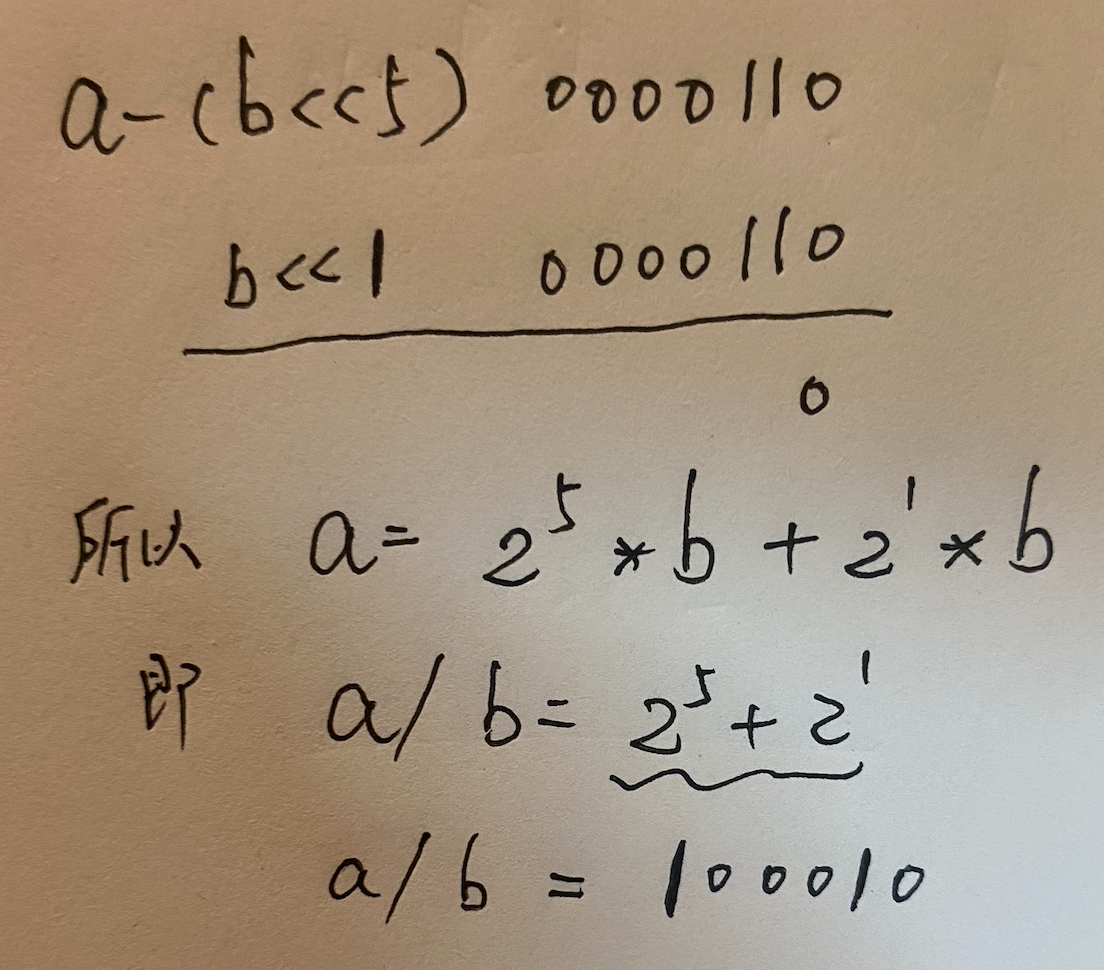 a-(b<<5) 0000110
b<<1 0000110
0
所以 a= 2⁵*b+2¹*b
即 a/b=2⁵+2¹
a/b = 100010